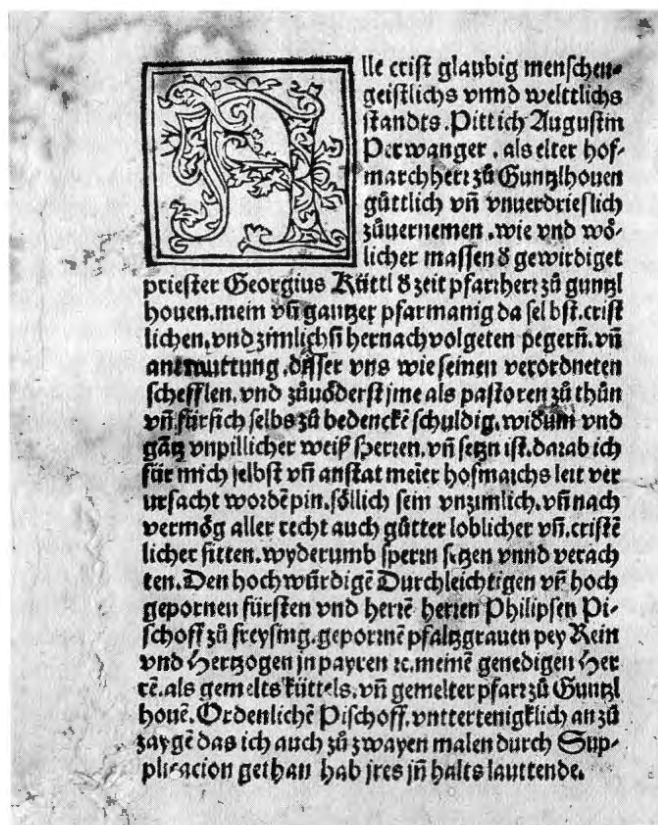 Alle crist glaubig menschen⸗
geistlichs vnnd welttlichs
standts. Pitt ich Augustin
Perwanger. als elter hof⸗
marchherr zů Guntzlhouen
gůttlich vñ vnuerdrieslich
zůuernemen. wie vnd wö⸗
licher massen d gewirdiget
priester Georgius Küttl d zeit pfarrherr zů guntzl
houen. mein vñ gantzer pfarmanig da selbst. crist
lichen. vnd zimlichñ hernachvolgeten pegerñ. vñ
anmuttung. dässer vns wie seinen verordneten
schefflen. vnd zůuöderst jme als pastoren zů thůn
vñ. für sich selbs zů bedenckē schuldig. widum vnd
gātz vnpillicher weiß sperren. vñ setzn ist. darab ich
für mich selbst vñ anstat meier hofmarchs leit ver
ursacht wordē pin. söllich sein vnzimlich. vñ nach
vermög aller recht auch gůtter loblicher vñ. cristē
licher sitten. wyderumb sperrn setzen vnnd verach
ten. Den hochwürdigē Durchleichtigen vñ hoch
gepornen fürsten vnd herrē herren Philipsen Pi⸗
schoff zů freysing. gepornē pfaltzgrauen pey Rein
vnd Hertzogen jn payren ꝛc. meinē genedigen Her
rē. als gemelts küttels. vñ gemelter pfarr zů Guntzl
houē. Ordenlichē Pischoff. vnttertenigklich an zů
zaygē das ich auch zů zwayen malen durch Sup⸗
plicacion gethan hab jres jñ halts lauttende.